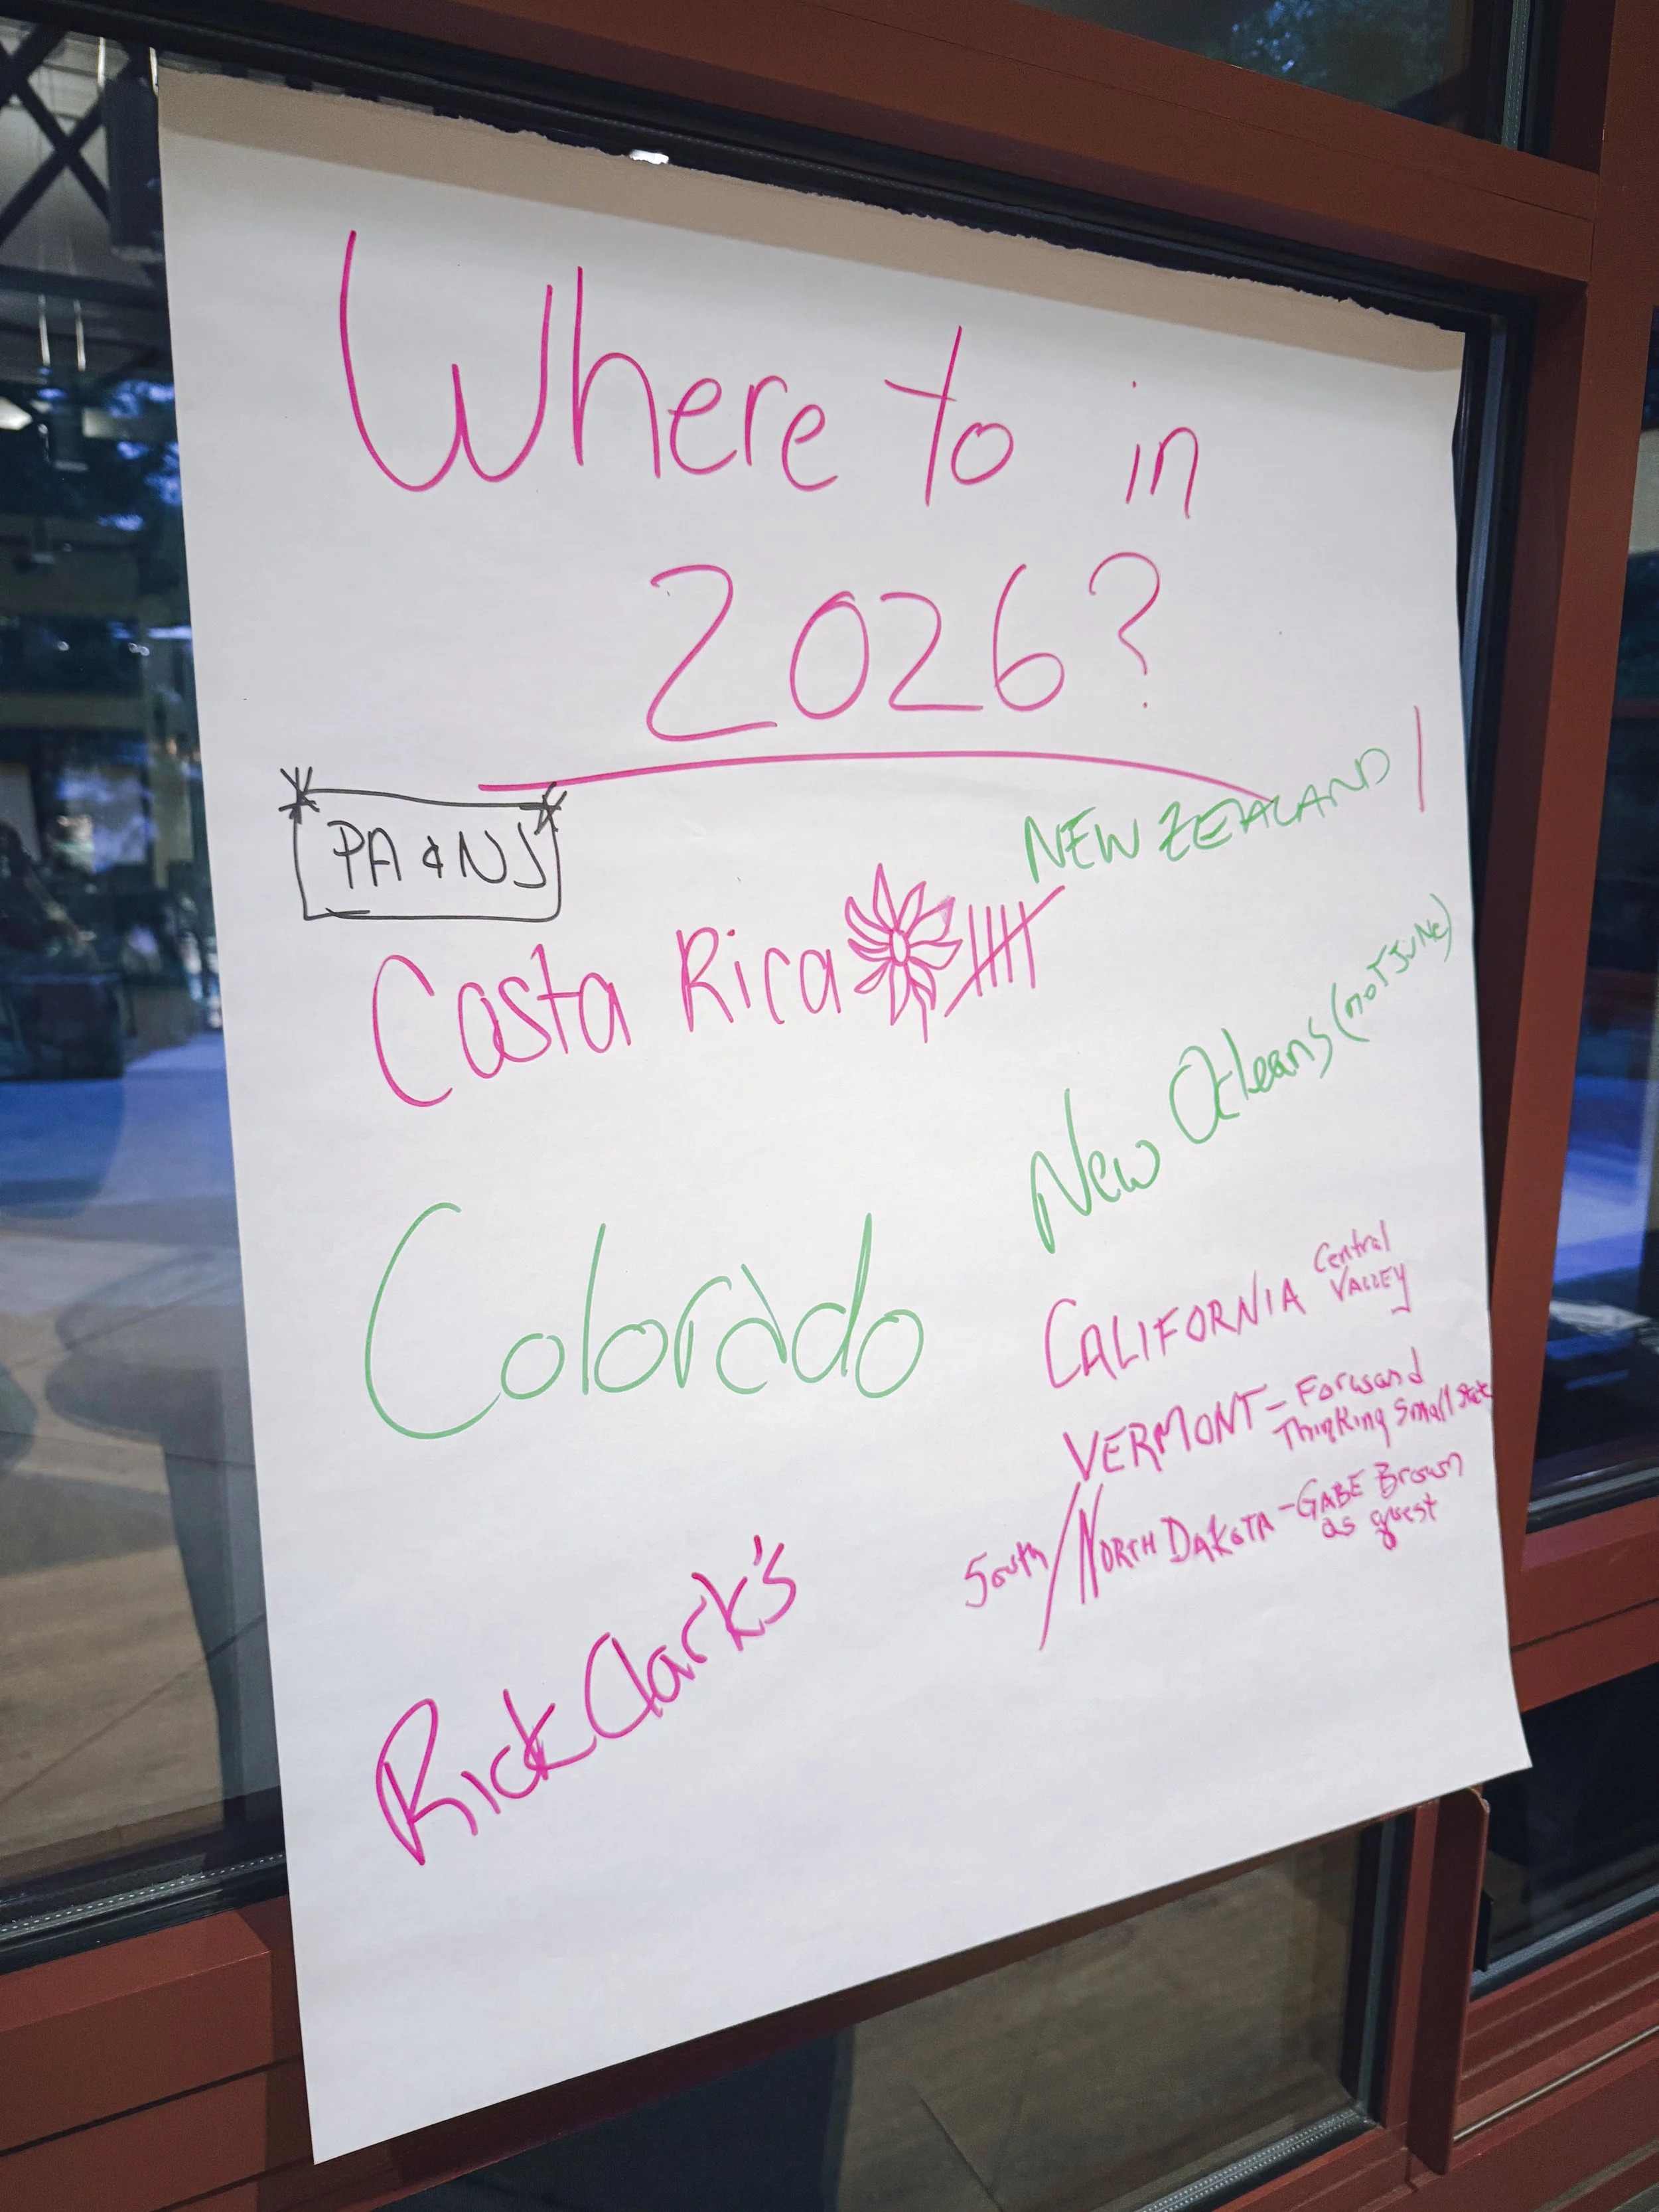 Where to in
2026?
PA & NJ
NEW ZEALAND
Costa Rica
New Orleans (NOT JUNE)
Colorado
CALIFORNIA Central
VALLEY
VERMONT – Forward
Thinking Small State
South/NORTH DAKOTA – GABE Brown
as guest
Rick Clark's